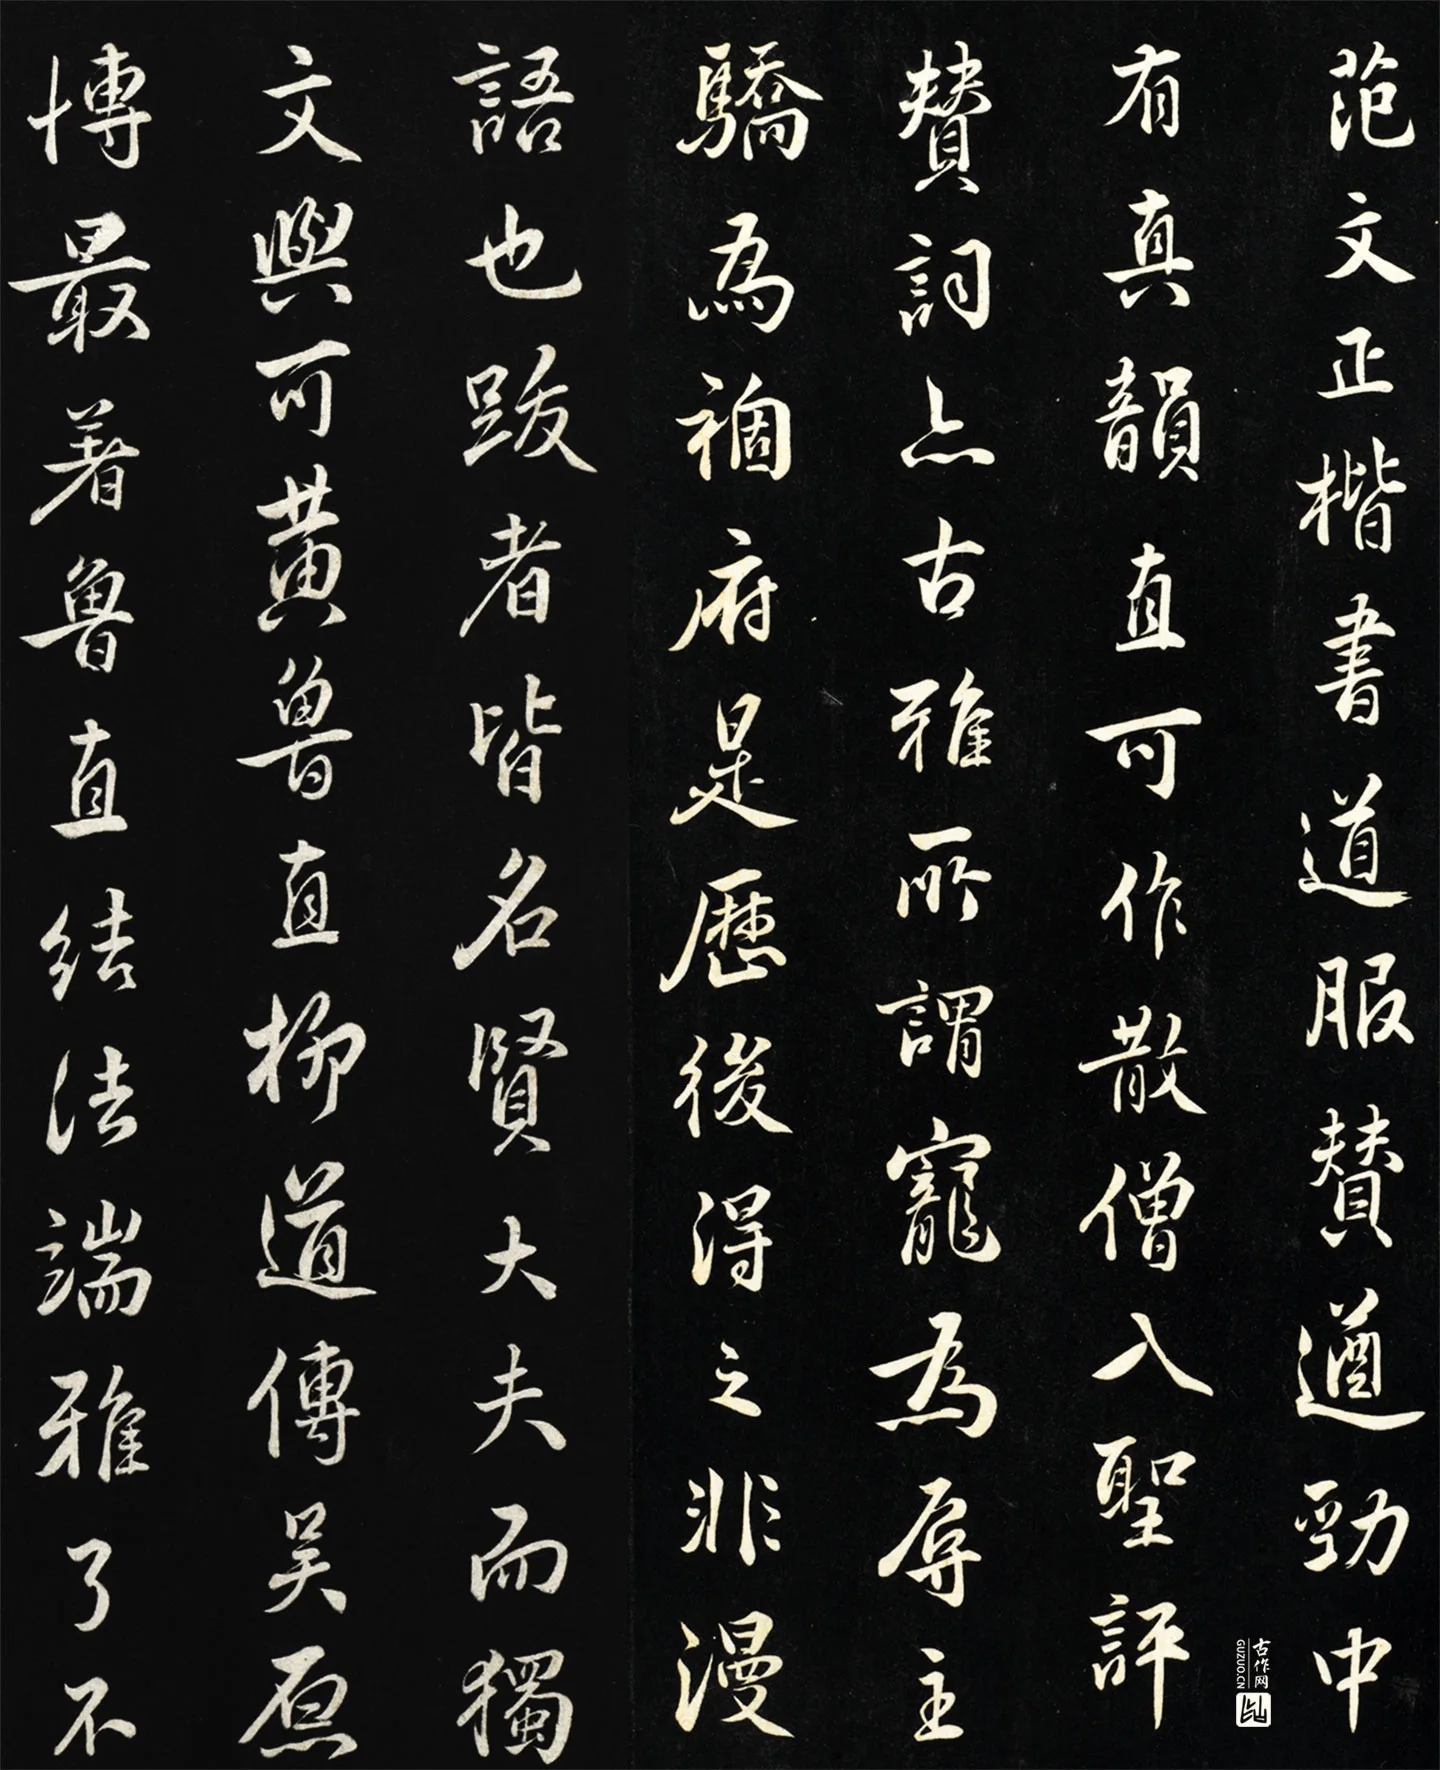 范文正楷書道服賛遒勁中
有真韻直可作散僧入聖評
賛詞亦古雅所謂寵為辱主
驕為禍府是歷後得之非漫
語也跋者皆名賢大夫而獨
文與可黄魯直栁道傳吴原
博最著魯直結法端雅了不
古作网
GUZUO.CN